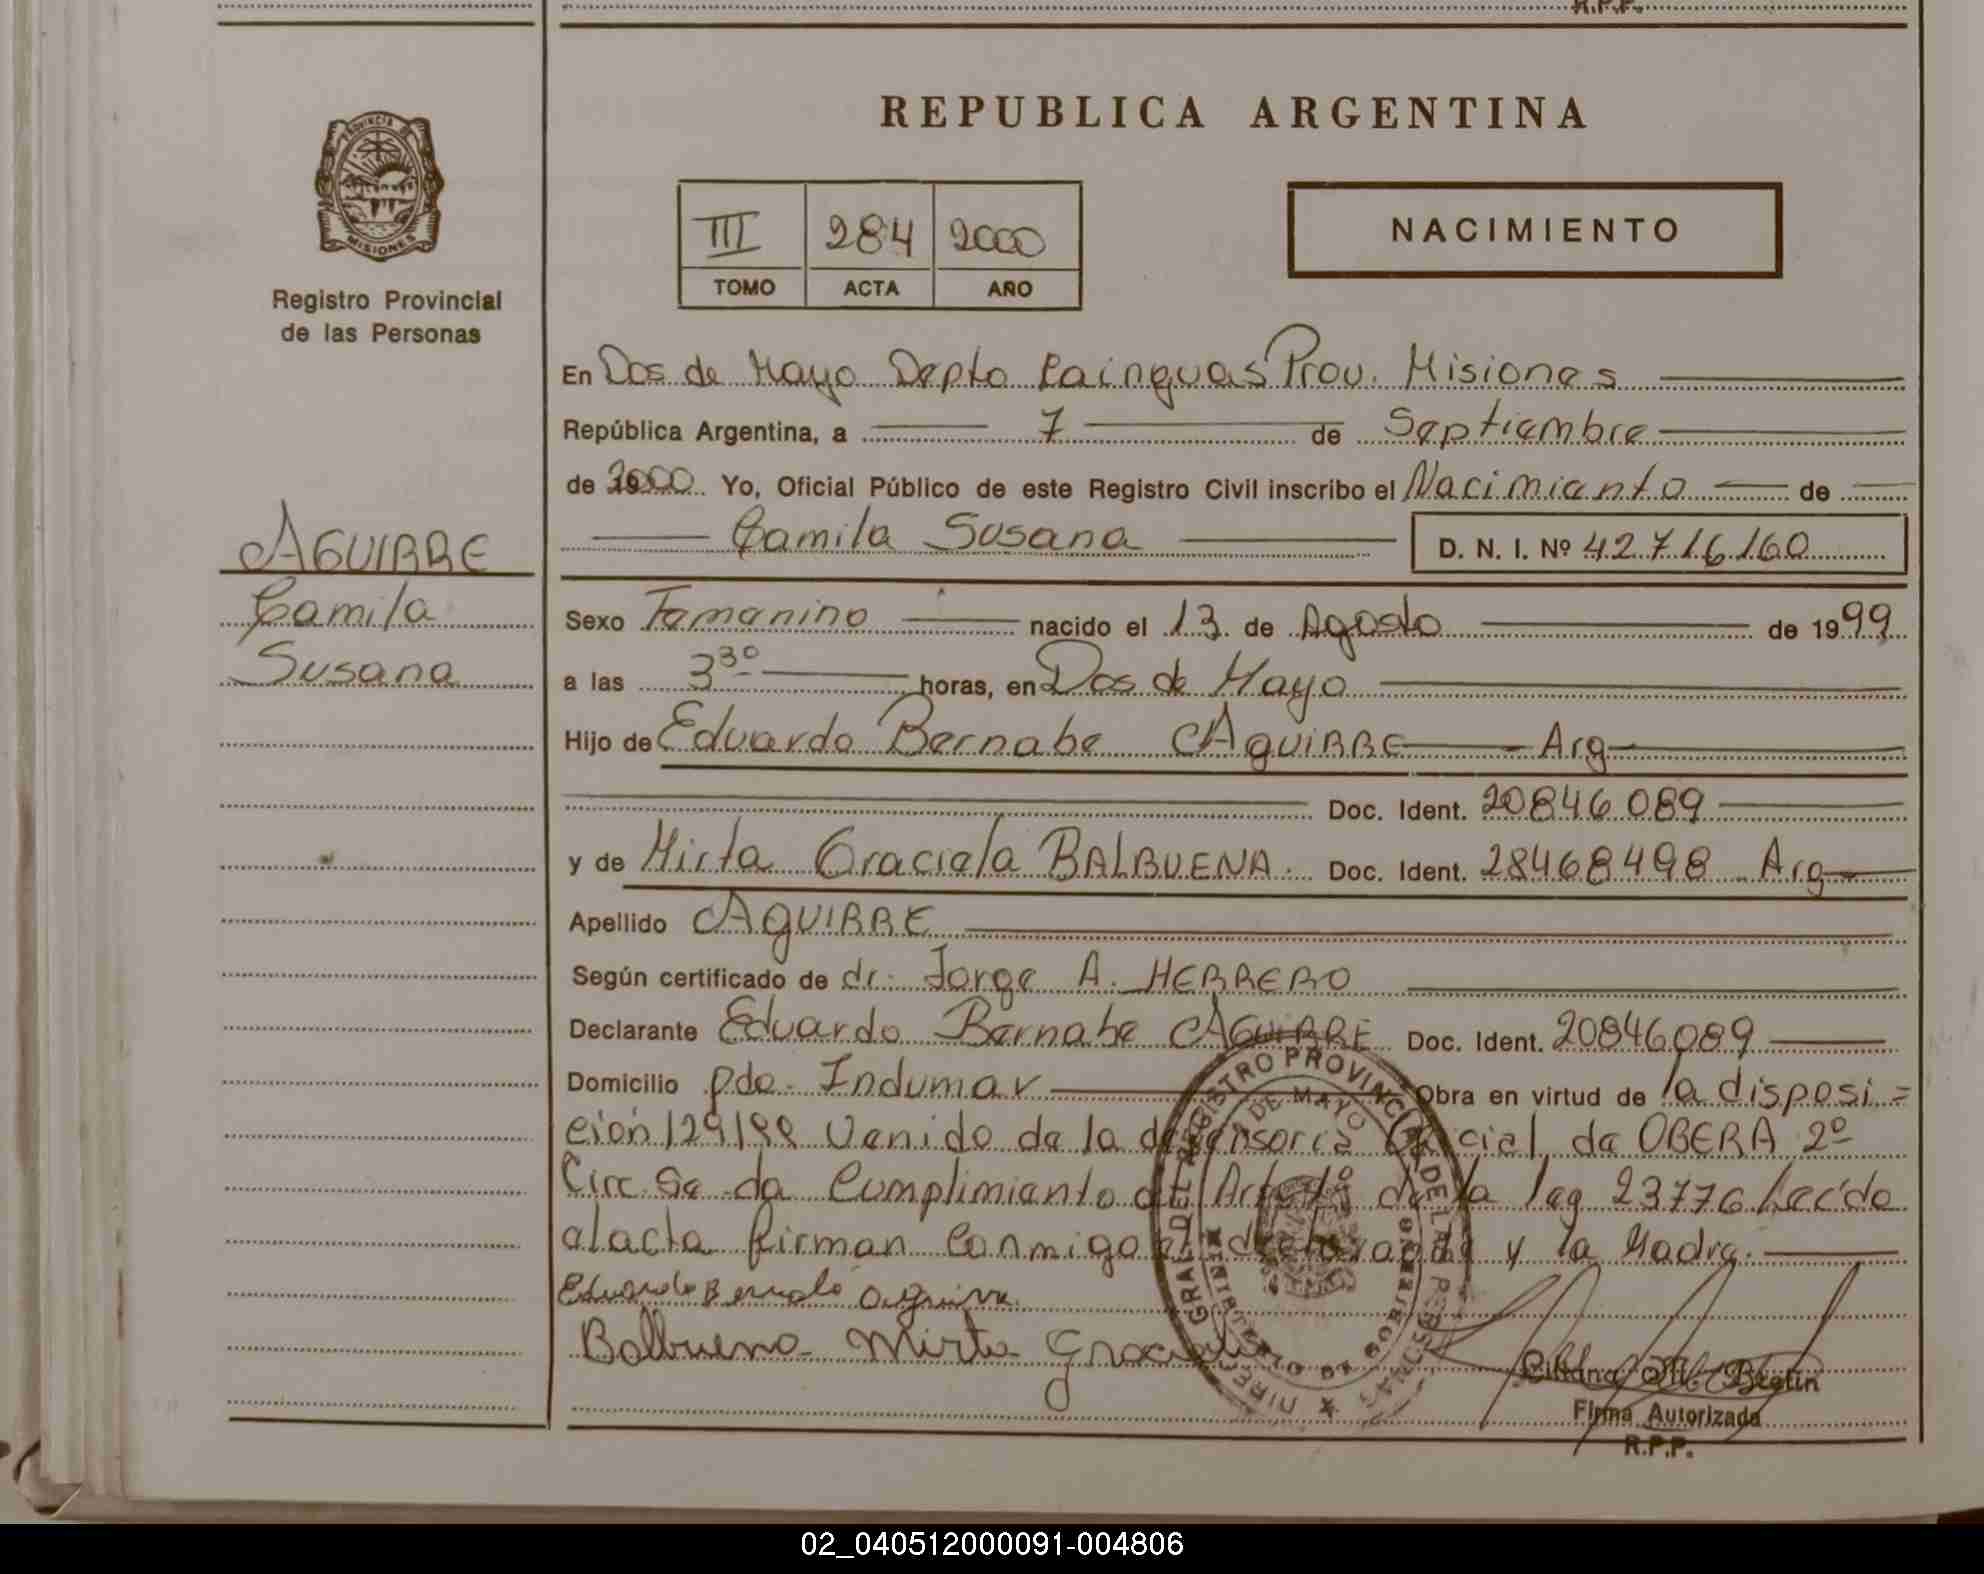 R.P.P.
REPUBLICA ARGENTINA
PROVINCIA DE
MISIONES
Registro Provincial
de las Personas
III 284 2000
TOMO ACTA AÑO
NACIMIENTO
En Dos de Mayo Depto Cainguas Prov. Misiones
República Argentina, a 7 de Septiembre
de 2000 Yo, Oficial Público de este Registro Civil inscribo el Nacimiento de
Camila Susana D. N. I. Nº 42716160
AGUIRRE
Camila
Susana
Sexo Femenino nacido el 13 de Agosto de 1999
a las 3 30 horas, en Dos de Mayo
Hijo de Eduardo Bernabe AguiRRE Arg
Doc. Ident. 20846089
y de Mirta Graciela BALBUENA. Doc. Ident. 28468498 Arg
Apellido AgUIRRE
Según certificado de dr. Jorge A. HERRERO
Declarante Eduardo Bernabe AGUIRRE Doc. Ident. 20846089
Domicilio pdo. Indumar Obra en virtud de la disposi=
ción 129/99 Venido de la defensoria Oficial de OBERA 2º
Circ. Se da Cumplimiento al Art de la ley 23776 Leído
el acta firman Conmigo el declarante y la Madre.
Eduardo Bernabe Aguirre
Balbueno Mirta Graciela
GRAL DEL REGISTRO PROVINCIAL DE LAS PERSONAS
DE MAYO
MINISTERIO DE GOBIERNO
Firma Autorizada
R.P.P.
02_040512000091-004806